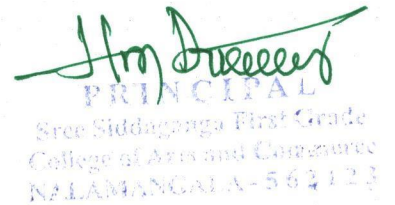 PRINCIPAL
Sree Siddaganga First Grade
College of Arts and Commerce
NELAMANGALA - 562123